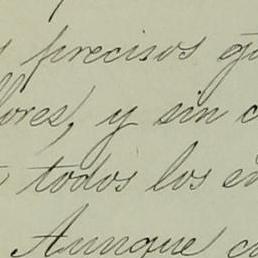 precisos
ores, y sin
todos los
Aunque